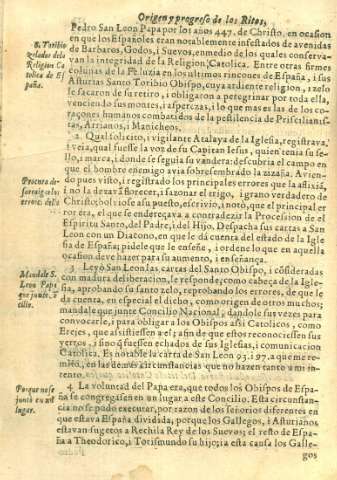 Origen y progreso de los Ritos,
Pedro San Leon Papa por los años 447. de Christo, en ocasion
en que los Españoles eran notablemente infestados de avenidas
de Barbaros, Godos, i Suevos, en medio de los quales conserva-
van la integridad de la Religion Catolica. Entre otras firmes
colunas de la Fè luzia en los ultimos rincones de España, i sus
Asturias Santo Toribio Obispo, cuya ardiente religion, i zelo
le sacaron de su retiro, i obligaron a peregrinar por toda ella,
venciendo sus montes, i asperezas, i lo que mas es las de los co-
raçones humanos combatidos de la pestilencia de Priscilianis-
tas, Arrianos, i Manicheos.
S. Toribio
zelador de la
Religion Ca
tolica de Es
paña.
2. Qual solicito, i vigilante Atalaya de la Iglesia, registrava,
i veia, qual fuesse la voz de su Capitan Iesus, quien tenia su se-
llo, i marca, i donde se seguia su vandera: descubria el campo en
que el hombre enemigo avia sobresembrado la zizaña. Avien-
do pues visto, i registrado los principales errores que la afligiã,
i no la dexavã florecer, i sazonar el trigo, i grano verdadero de
Christo; bolviose a su puesto, escrivio, i notò, que el principal er
ror era, el que se endereçava a contradezir la Procession de el
Espiritu Santo, del Padre, i del Hijo. Despacha sus cartas a San
Leon con un Diacono, en que le dà cuenta del estado de la Igle
sia de España; pidele que le enseñe, i ordene lo que en aquella
ocasion deve hazer para su aumento, i enseñança.
Procura de
los
errores della
3. Leyò San Leon las cartas del Santo Obispo, i cõsideradas
con madura deliberacion, le responde, como cabeça de la Igle-
sia, aprobando su santo zelo, reprobando los errores, de que le
da cuenta, en especial el dicho, como origen de otros muchos;
mandale que junte Concilio Nacional; dandole sus vezes para
convocarle, i para obligar a los Obispos assi Catolicos, como
Erejes, que assistiessen a el; a fin de que estos reconociessen sus
yerros, i sino quedassen echados de sus Iglesias, i comunicacion
Catolica. Es notable la carta de San Leon 93. i 97. a que me re-
mito, en las demas circunstancias que no hazen tanto a mi in-
tento.
Mandale S.
Leon Papa
que junte
cilio.
4. La voluntad del Papa era, que todos los Obispos de Espa-
ña se congregassen en un lugar a este Concilio. Esta circunstan-
cia no se pudo executar, por razon de los señorios diferentes en
que estava España dividada, porque los Gallegos, i Asturianos
estavan sugetos a Rechila Rey de los Suevos; el resto de Espa-
ña a Theodorico, i Torismundo su hijo; i a esta causa los Galle-
Porque no se
juntò en un
lugar.
gos